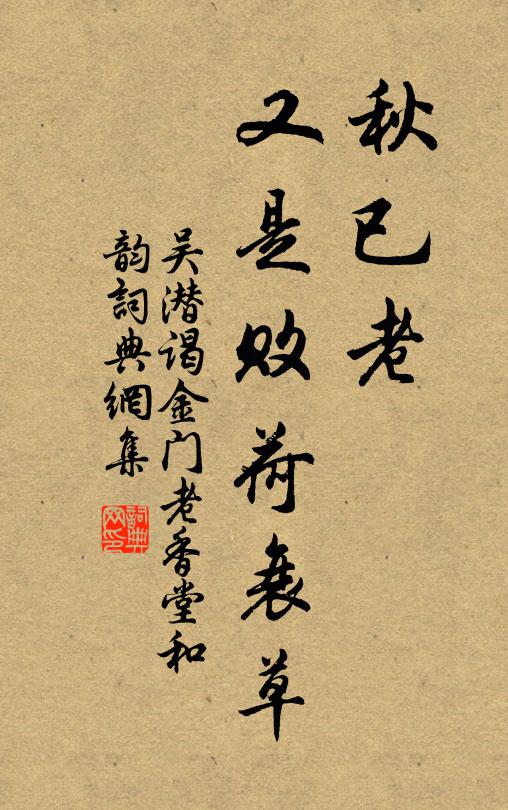 秋已老
又是败荷衰草
吴潜谒金门老香堂和
韵詞典網集
詞典网印